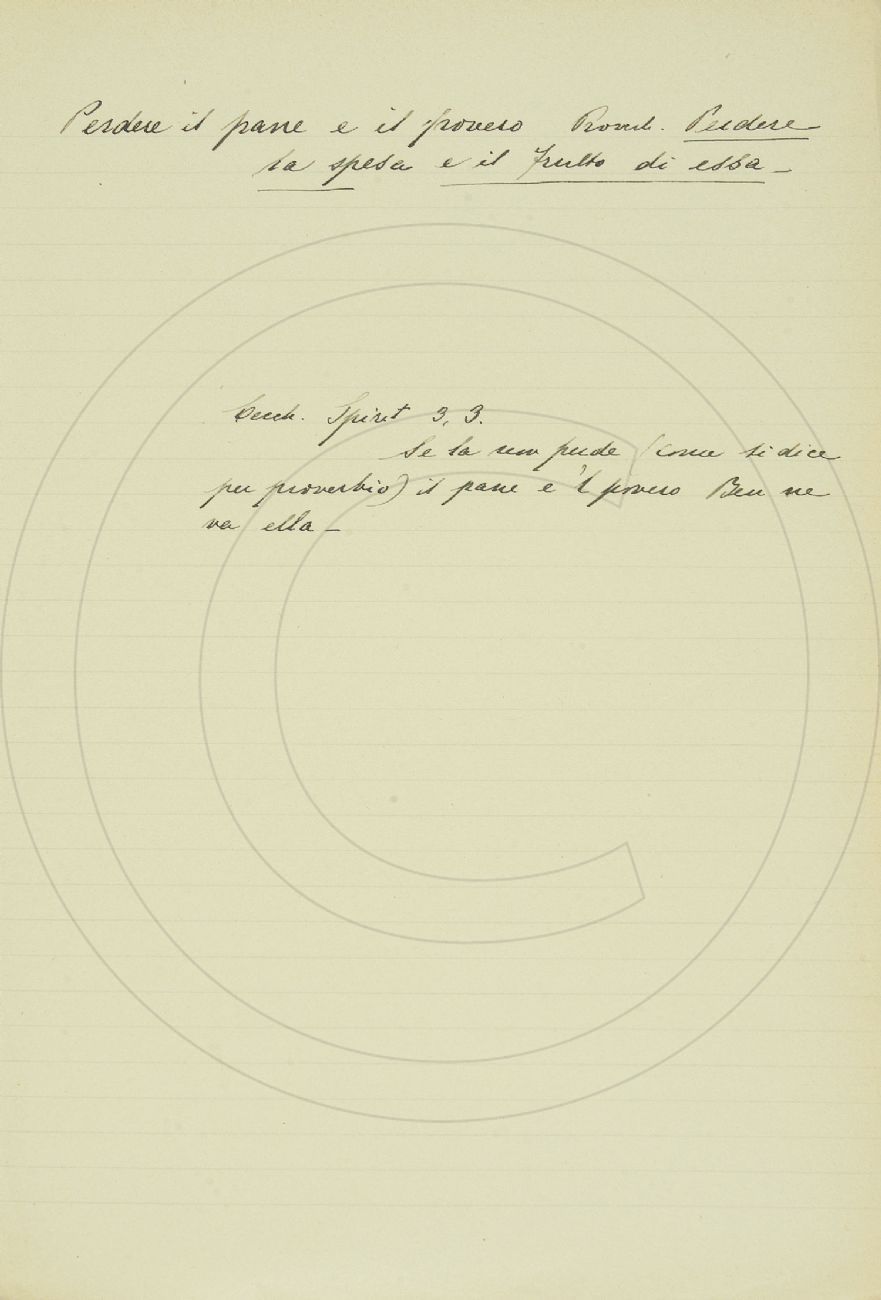 Perdere il pane e il povero Proverb. Perdere
la spesa e il frutto di essa _
Cecch. Spirit 3, 3.
Se la non perde (come si dice
per proverbio) il pane e 'l povero Ben ne
va ella _